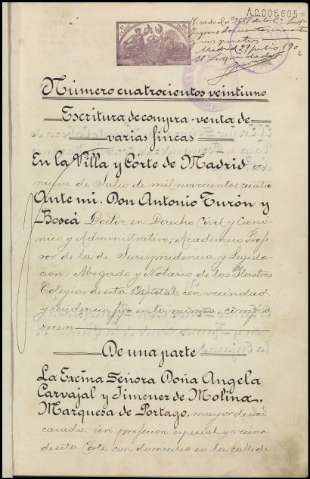 A0005605
Número cuatrocientos veintiuno
Escritura de compra-venta de
varias fincas
En la Villa y Corte de Madrid
de Julio de mil novecientos cuatro
Ante mi: Don Antonio Turón y
Boscá Doctor en Derecho Civil y Canó-
nico y Administrativo, Académico Profe-
sor de la de Jurisprudencia y Legisla-
ción Abogado y Notario de los Ilustres
Colegios de esta Capital con vecindad
y residencia fija en la misma
De una parte
La Excma Señora Doña Angela
Carvajal y Jimenez de Molina,
Marquesa de Portago, mayor de edad
casada sin profesión especial y vecina
de esta Corte con domicilio en la calle de